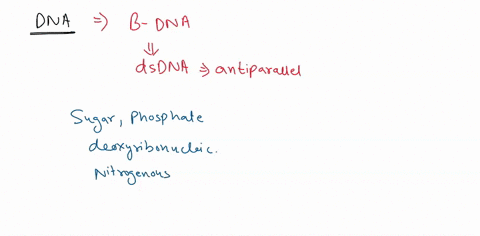 DNA ⇒ B-DNA
⇓
dsDNA ⇒ antiparallel
Sugar, Phosphate
deoxyribonucleic.
Nitrogenous